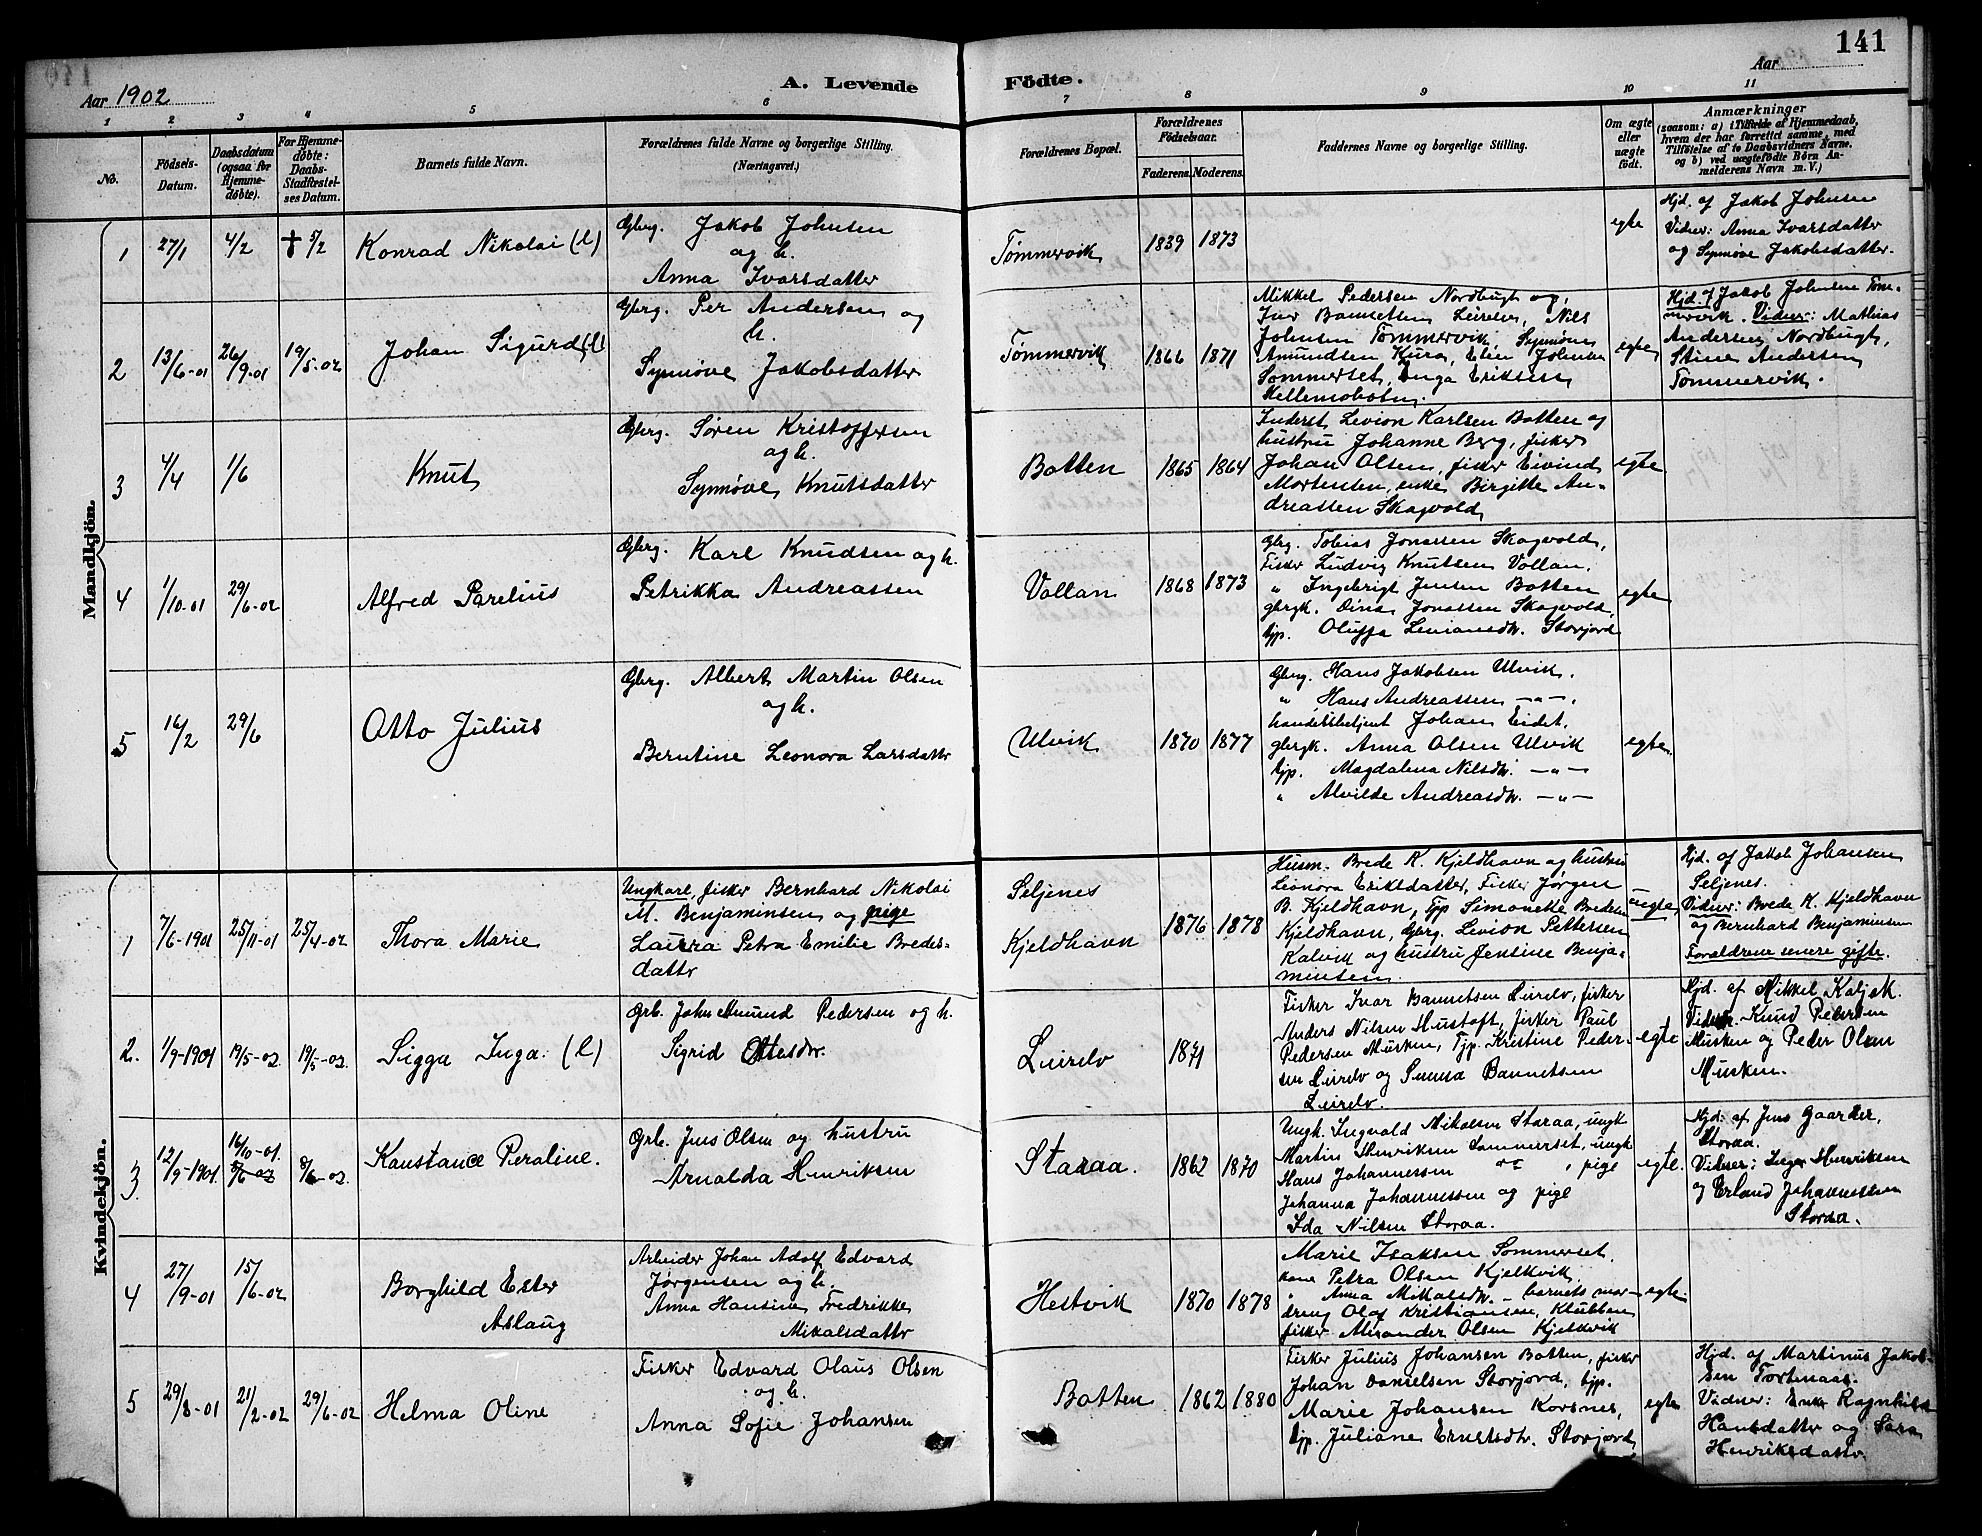 141
Aar 1902
A. Levende
Födte.
Aar
1 2 3 4 5 6 7 8 9 10 11
No.
Födsels-
Datum.
Daabsdatum
(ogsaa for
Hjemme-
døbte).
For Hjemme-
døbte:
Daabs-
Stadfæstel-
ses Datum.
Barnets fulde Navn.
Forældrenes fulde Navne og borgerlige Stilling.
(Næringsvei.)
Forældrenes Bopæl.
Forældrenes
Födselsaar.
Faderens.
Moderens.
Faddernes Navne og borgerlige Stilling.
Om ægte
eller
uægte
födt.
Anmærkninger
(saasom: a) i Tilfælde af Hjemmedaab,
hvem der har forrettet samme, med
Tilføielse af to Daabsvidners Navne.
og b) ved uægtefödte Börn An-
melderens Navn m. V.)
Mandkjön.
1
27/1
4/2
† 5/2
Konrad Nikolai (l)
Gbrg. Jakob Johnsen
og h.
Anna Ivarsdatter
Tømmervik
1839
1873
egte
Hjd. af Jakob Johnsen
Vidner: Anna Ivarsdatter
og Synnøve Jakobsdatter.
2
13/6-01
26/9-01
19/5-02
Johan Sigurd (l)
Gbrg. Per Andersen og
h.
Synnøve Jakobsdatter
Tømmervik
1866
1871
Mikkel Pedersen Nordbugt og
Iver Bannetsen Leirelv, Nils
Johnsen Tømmervik, Synnøve
Amundsen Kura, Elen Johnsen
Sommerset, Inga Eriksen
Hellemobotn.
egte
Hjd. af Jakob Johnsen Tøm-
mervik. Vidner: Mathias
Andersen Nordbugt,
Stine Andersen
Tømmervik.
3
4/4
1/6
Knut
Gbrg. Søren Kristoffersen
og h.
Synnøve Knutsdatter
Botten
1865
1864
Inderst Levion Karlsen Botten og
hustru Johanne Berg, fisker
Johan Olsen, fisker Eivind
Mortensen, enke Birgitte An-
dreassen Skagvold
egte
4
1/10-01
29/6-02
Alfred Parelius
Gbrg. Karl Knudsen og h.
Petrikka Andreassen
Vollan
1868
1873
Gbrg. Tobias Jonassen Skogvold,
Fisker Ludvig Knutsen Vollan,
" Ingebrigt Jensen Botten
gbrgk. Dina Jonassen Skagvold,
tjp. Oluffa Leviansdtr. Storjord
egte
5
16/2
29/6
Otto Julius
Gbrg. Albert Martin Olsen
og h.
Berntine Leonora Larsdattr
Ulvik
1870
1877
Gbrg. Hans Jakobsen Ulvik.
" Hans Andreassen —"—.
handelsbetjent Johan Eidet.
gbrgk. Anna Olsen Ulvik
tjp. Magdalena Nilsdtr. —"—
" Alvilde Andreasdtr. —"—
egte.
Kvindekjön.
1
7/6-1901
25/11-01
25/4-02
Thora Marie
Ungkarl, fisker Bernhard Nikolai
M. Benjaminsen og pige
Laura Petra Emilie Bredes-
dattr
Seljenes
Kjeldhavn
1876
1878
Husm. Brede K. Kjeldhavn og hustru
Leonora Eriksdatter, Fisker Jørgen
B. Kjeldhavn, Tjp Simonette Bredesen
Kjeldhavn, Gbrg. Levion Pettersen
Kalvik og hustru Jentine Benja-
minsen.
uegte
Hjd. af Jakob Johansen
Seljenes.
Vidner: Brede K. Kjeldhavn
og Bernhard Benjaminsen
Forældrene senere gifte.
2.
1/9-1901
19/5-02
19/5-02.
Sigga Inga. (l)
Grb. John Amund Pedersen og h.
Sigrid Ottesdtr.
Leirelv
1871
Fisker Ivar Bannetsen Leirelv, fisker
Anders Nilsen Mustoft, fisker Paul
Pedersen Musken, Tjp. Kristine Peder-
sen Leirelv og Bannetsen
Leirelv.
egte
Hjd. af Mikkel
Vidner. Knud Pedersen
Musken og Peder Olsen
Musken.
3
12/9-1901.
16/10-01.
8/6-02
8/6-02.
Konstance Peraline.
Grb. Jens Olsen og hustru
Arnalda Henriksen
Staraa.
1862
1870
Ungk. Ingvald Mikalsen Staraa, ungk
Martin Henriksen Sommerset, ungk
Hans Johannessen , pige
Johanna Johannessen og pige
Ida Nilsen Storaa.
egte.
Hjd. af Jens Gaarder,
Storaa.
Vidner: Inger Henriksen
og Erland Johannessen
Storaa.
4
27/9-01
15/6-02
Borghild Ester
Aslaug
Arbeider Johan Adolf Edvard
Jørgensen og h.
Anna Hansine Fredrikke
Mikalsdattr
Hestvik
1870
1878
Marie Isaksen Sommerset.
kone Petra Olsen Kjelkvik,
" Anna Mikalsdtr. – barnets mor –
dreng Olaf Kristiansen, Klubben
fisker Alexander Olsen Kjelkvik
egte.
5
29/8-01
21/2-02
29/6-02
Helma Oline
Fisker Edvard Olaus Olsen
og h.
Anna Sofie Johansen
Botten
1862
1880
Fisker Julius Johansen Botten, fisker
Johan Danielsen Storjord, tjp.
Marie Johansen Korsnes,
tjp. Juliane Ernstsdtr. Storjord
egte
Hjd. af Martinus Jakob-
sen Tortenaas.
Vidner: Enke Ragnhild
Hansdattr og Sara
Henriksdattr.